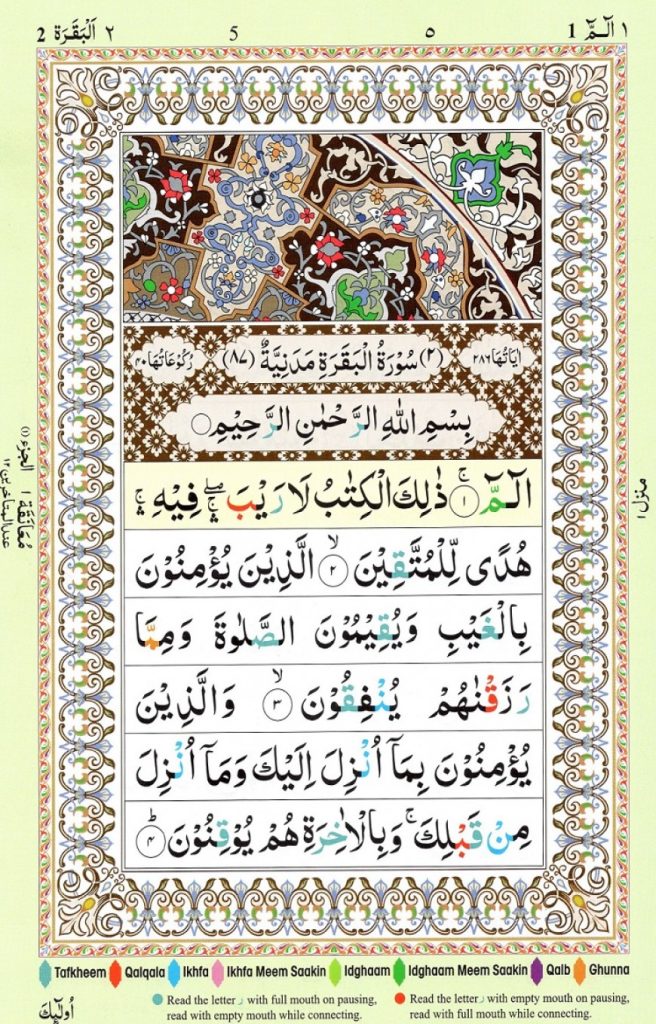 ١ الٓمّٓ 1
٥
5
٢ اَلْبَقَرَة 2
اٰيَاتُهَا ٢٨٦
(٢) سُوْرَةُ الْبَقَرَةِ مَدَنِيَّةٌ (٨٧)
رُكُوْعَاتُهَا ٤٠
بِسْمِ اللهِ الرَّحْمٰنِ الرَّحِيْمِ
الٓمّٓ ۚ ١ ذٰلِكَ الْكِتٰبُ لَا رَيْبَ ۖۛ فِيْهِ ۚۛ
هُدًى لِّلْمُتَّقِيْنَ ۙ ٢ الَّذِيْنَ يُؤْمِنُوْنَ
بِالْغَيْبِ وَيُقِيْمُوْنَ الصَّلٰوةَ وَمِمَّا
رَزَقْنٰهُمْ يُنْفِقُوْنَ ۙ ٣ وَالَّذِيْنَ
يُؤْمِنُوْنَ بِمَآ اُنْزِلَ اِلَيْكَ وَمَآ اُنْزِلَ
مِنْ قَبْلِكَ ۚ وَبِالْاٰخِرَةِ هُمْ يُوْقِنُوْنَ ؕ ٤
منزل ١
الجزء (١)
مُعَانَقَة ١
عند المتأخرين ١٢
Tafkheem Qalqala Ikhfa Ikhfa Meem Saakin Idghaam Idghaam Meem Saakin Qalb Ghunna
Read the letter ر with full mouth on pausing,
read with empty mouth while connecting.
Read the letter ر with empty mouth on pausing,
read with full mouth while connecting.
اُولٰٓئِكَ